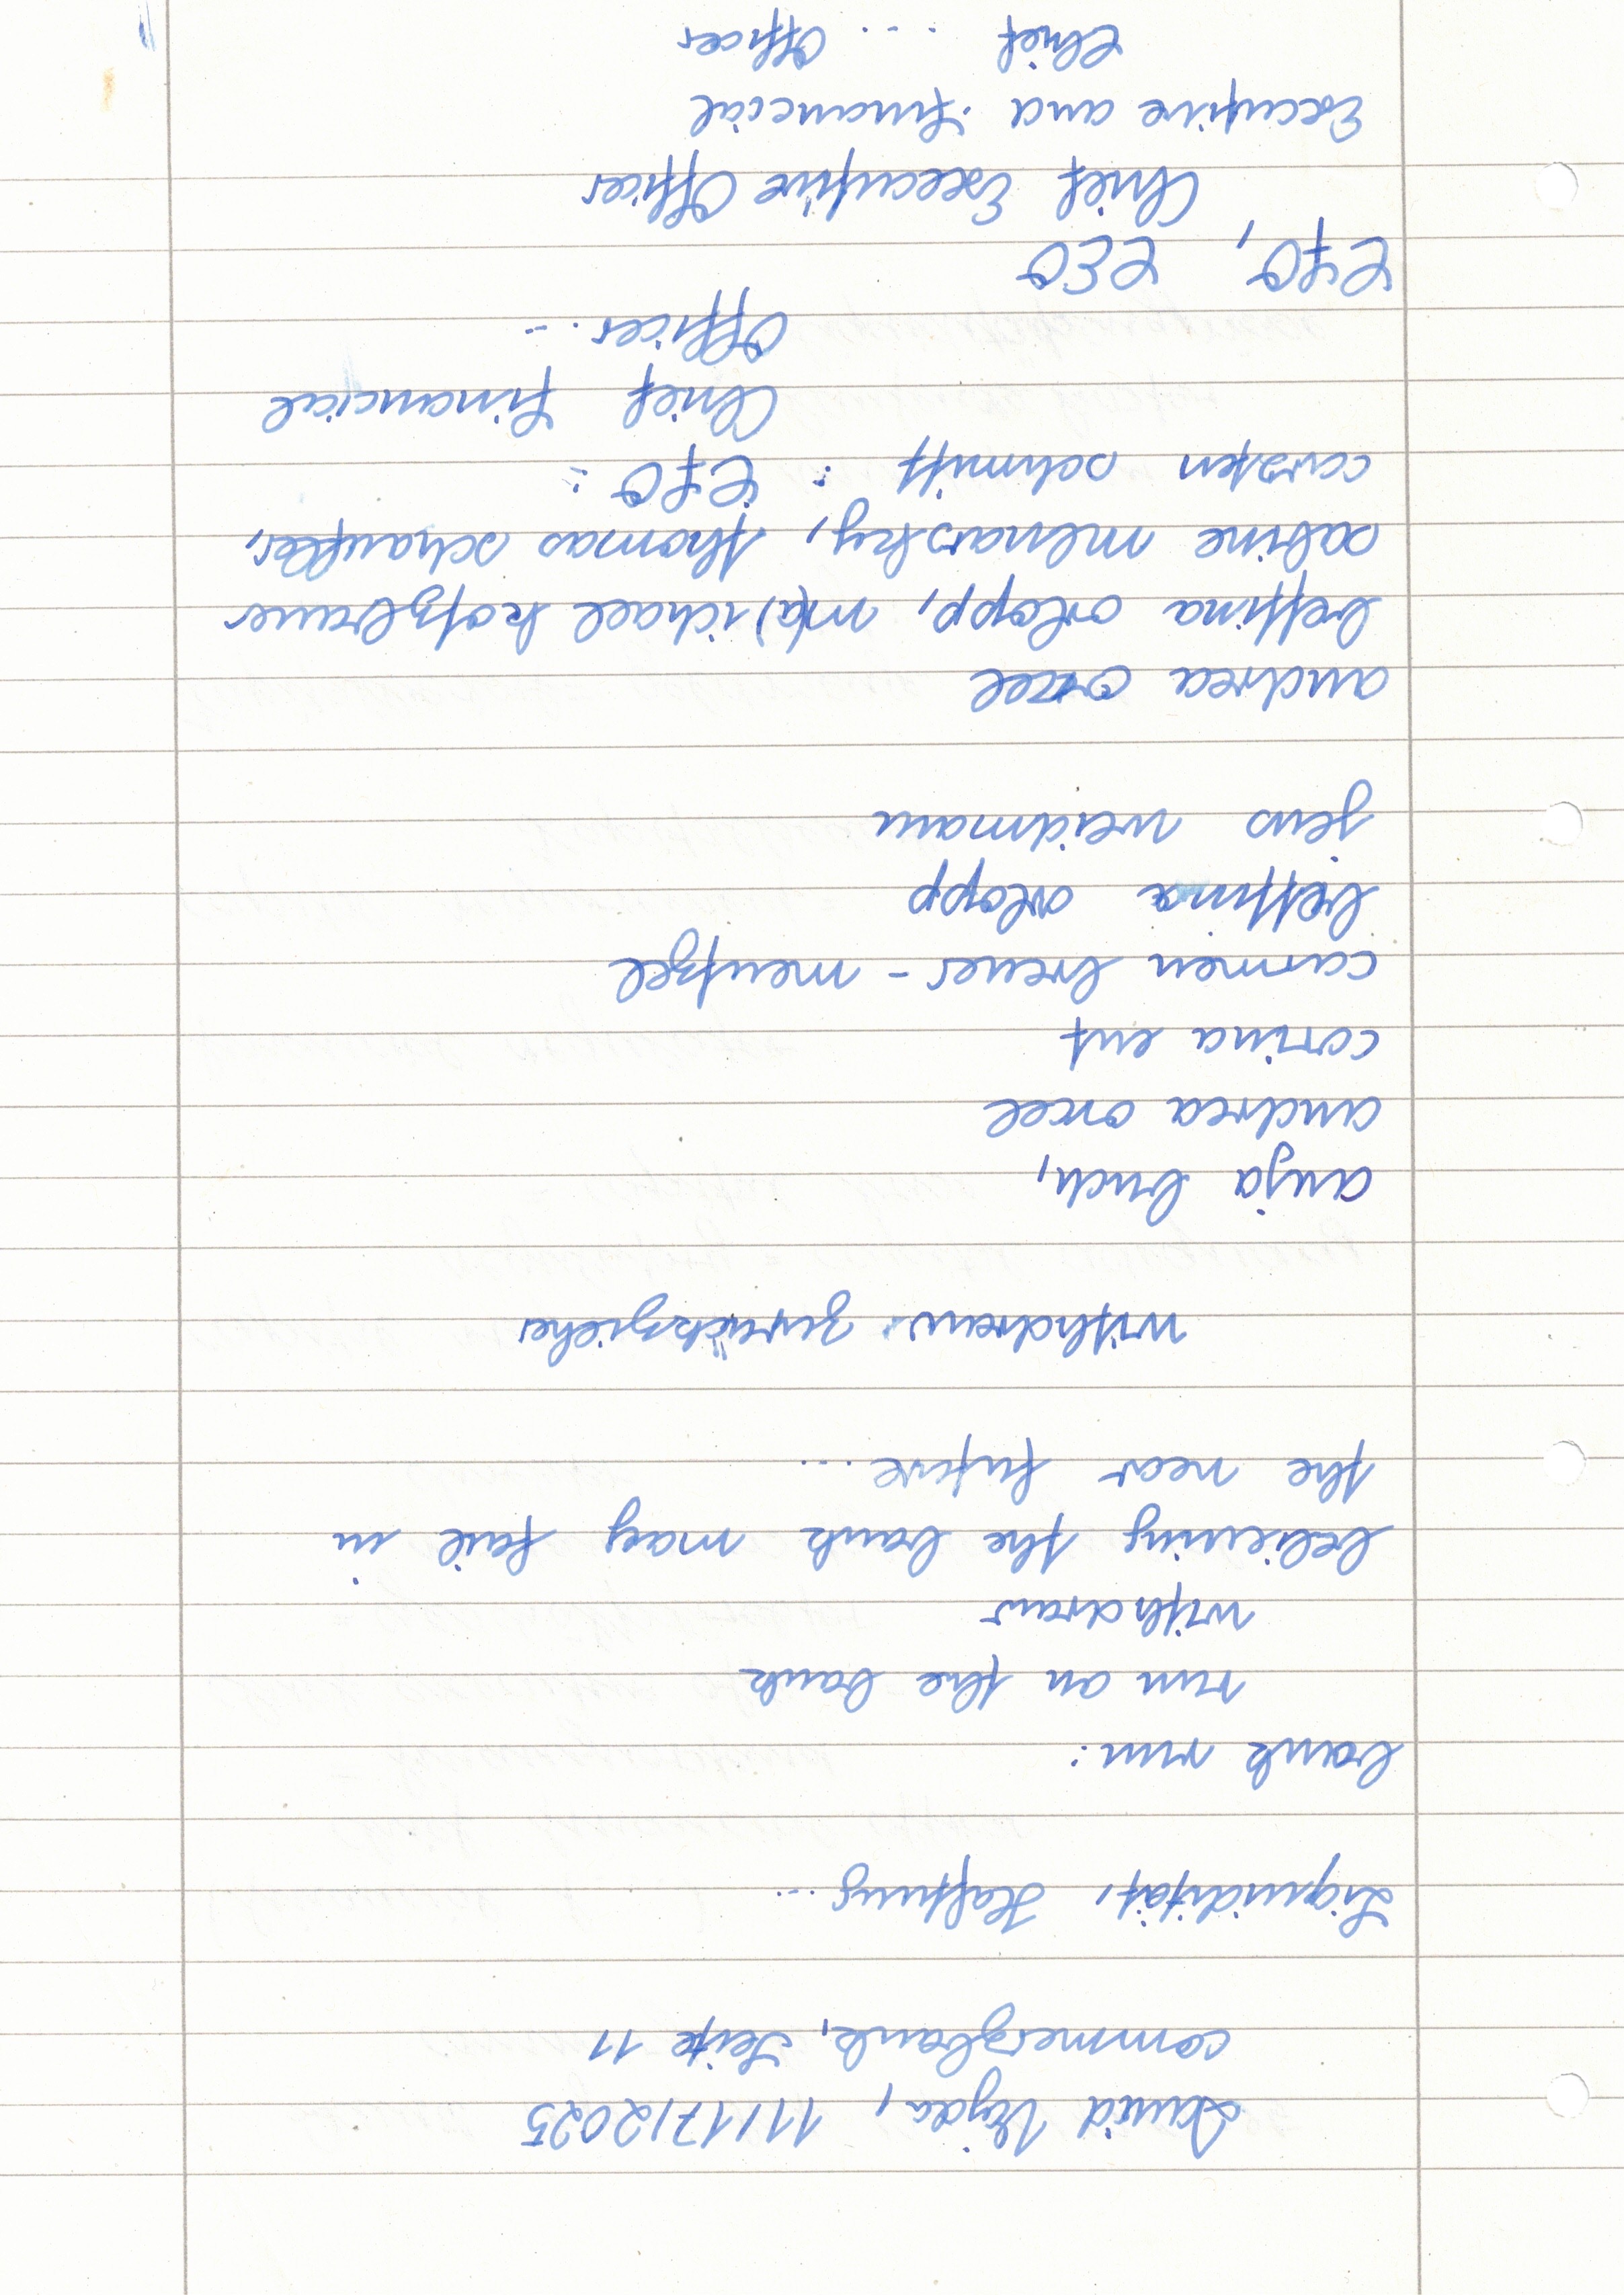 David Vajda, 11/17/2025
commerzbank, Seite 11
Liquidität, Haftung...
bank run:
run on the bank
withdraw
believing the bank may fail in
the near future...
withdraw: zurückziehen
anja buch,
andrea orcel
corina ent
carmen breuer-mentzel
bettina orlopp
jens weidmann
andrea orcel
bettina orlopp, m(a)ichael kotzbauer
sabine mlnarsky, thomas schaufler,
carsten schmitt : CFO :
Chief Financial
Officer...
CFO, CEO
Chief Executive Officer
Executive and Financial
Chief ... Officer